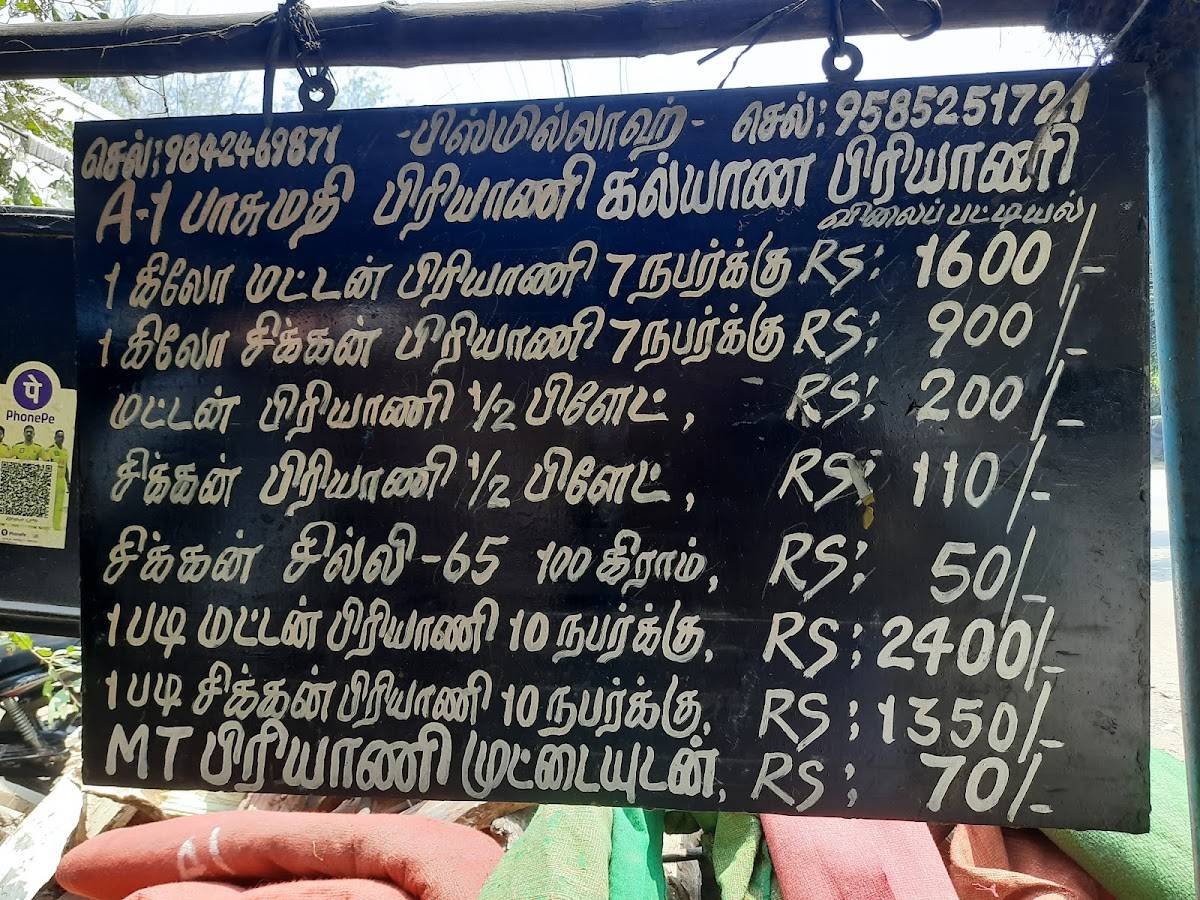 செல்:9842469871 -பிஸ்மில்லாஹ்- செல்:9585251721
A-1 பாசுமதி பிரியாணி கல்யாண பிரியாணி
விலைப் பட்டியல்
1 கிலோ மட்டன் பிரியாணி 7 நபர்க்கு RS: 1600/-
1 கிலோ சிக்கன் பிரியாணி 7 நபர்க்கு RS: 900/-
மட்டன் பிரியாணி 1/2 பிளேட், RS: 200/-
சிக்கன் பிரியாணி 1/2 பிளேட், RS: 110/-
சிக்கன் சில்லி-65 100 கிராம், RS: 50/-
1 படி மட்டன் பிரியாணி 10 நபர்க்கு, RS; 2400/-
1 படி சிக்கன் பிரியாணி 10 நபர்க்கு, RS; 1350/-
MT பிரியாணி முட்டையுடன், RS; 70/-
पे
PhonePe